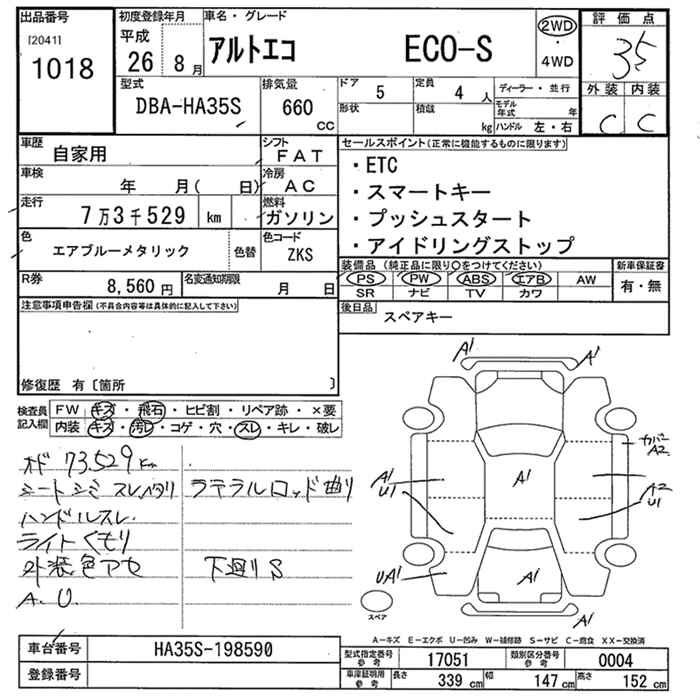 出品番号
[2041]
1018
初度登録年月
平成
26 8月
車名・グレード
アルトエコ ECO-S
2WD
・
4WD
評価点
3.5
外装 内装
C C
型式
DBA-HA35S
排気量
660
CC
ドア
5
定員
4人
形状
積載
kg
ディーラー・並行
モデル年式 年
ハンドル 左・右
車歴
自家用
シフト
FAT
車検
年 月( 日)
冷房
AC
走行
7万3千529 km
燃料
ガソリン
色
エアブルーメタリック
色替
色コード
ZKS
R券
8,560円
名変通知期限
月 日
セールスポイント(正常に機能するものに限ります)
・ETC
・スマートキー
・プッシュスタート
・アイドリングストップ
装備品(純正品に限り○をつけてください)
PS PW ABS エアB AW
SR ナビ TV カワ
新車保証書
有・無
後日品
スペアキー
注意事項申告欄(不具合内容等は具体的に記入して下さい)
修復歴 有〔箇所 〕
検査員記入欄
FW キズ・飛石・ヒビ割・リペア跡・×要
内装 キズ・汚レ・コゲ・穴・スレ・キレ・破レ
オド 73.529km
シートシミ スレ ラテラルロッド曲リ
ハンドルスレ
ライトくもり
外装色アセ 下廻りS
A.U.
A1
A1
カバー
A2
A1
U1
A1
A2
U1
UA1
A1
A1
スペア
A-キズ E-エクボ U-凹み W-補修跡 S-サビ C-腐食 XX-交換済
車台番号
HA35S-198590
登録番号
型式指定番号
参考
17051
類別区分番号
参考
0004
車庫証明用
参考
長さ 339 cm 幅 147 cm 高さ 152 cm